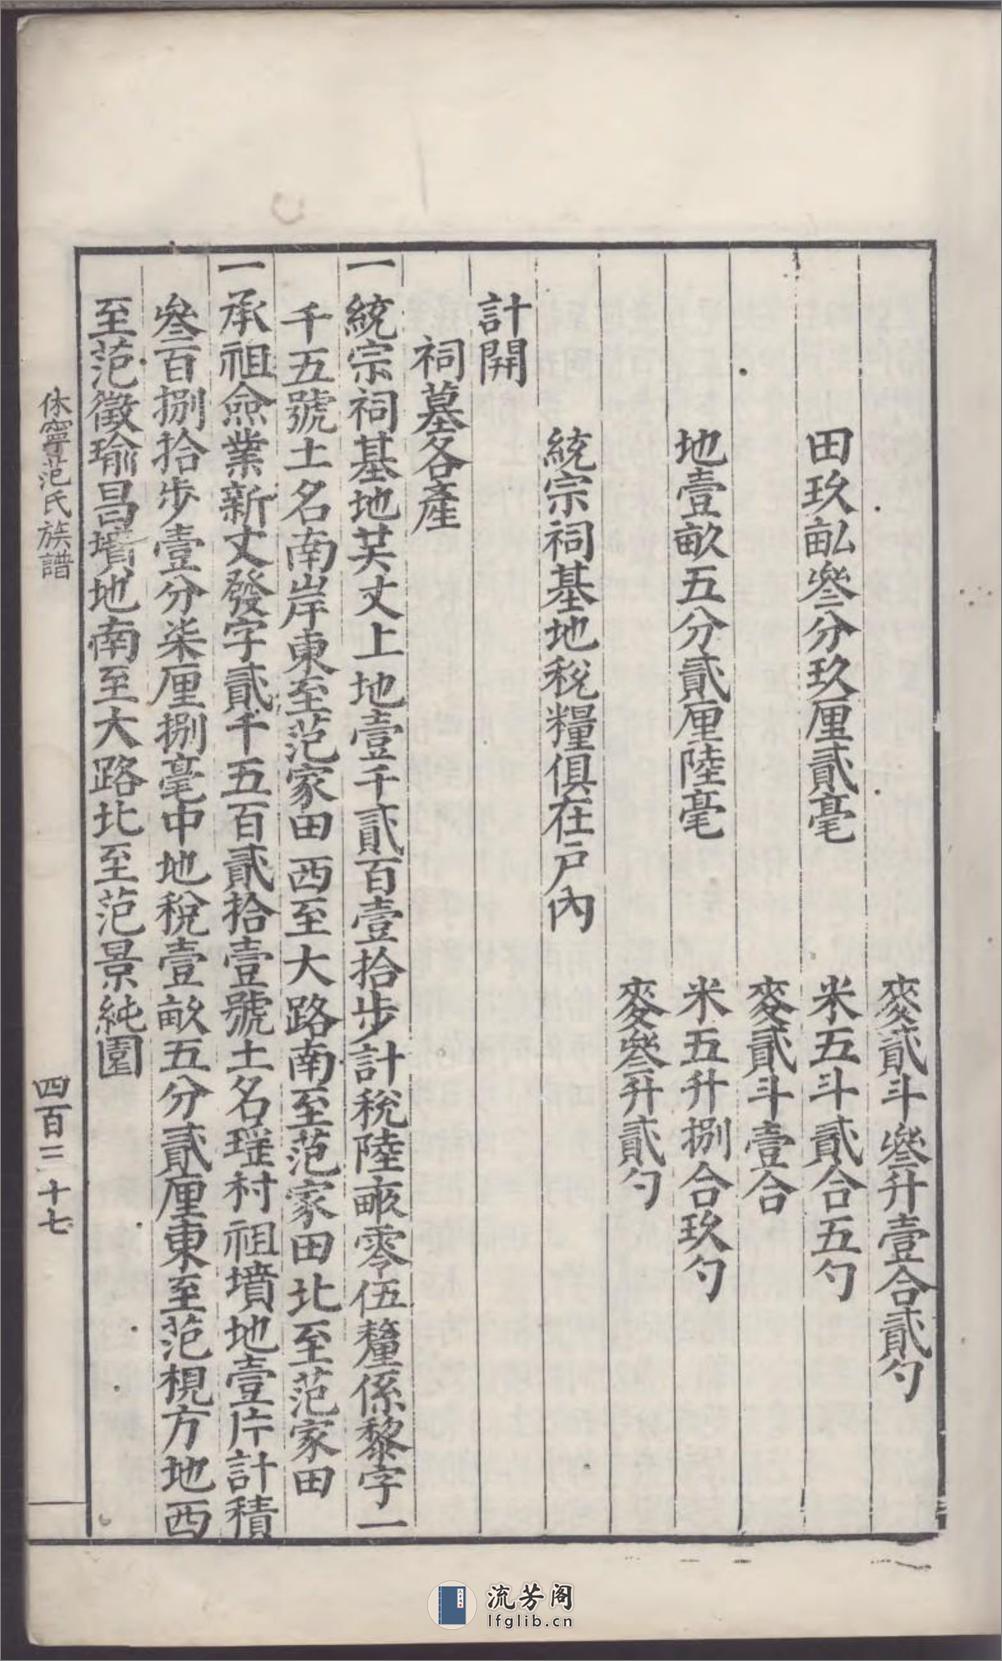 麥貳斗叄升壹合貳勺
田玖畆叄分玖厘貳毫
米五斗貳合五勺
麥貳斗壹合
地壹畝五分貳厘陸毫
米五升捌合玖勺
麥叄升貳勺
統宗祠基地稅糧俱在戶內
計開
祠墓各產
一統宗祠基地共丈上地壹千貳百壹拾步計稅陸畝零伍釐係黎字一
千五號土名南岸東至范家田西至大路南至范家田北至范家田
一承祖僉業新丈發字貳千五百貳拾壹號土名瑶村祖墳地壹片計積
叄百捌拾步壹分柒厘捌毫中地稅壹畝五分貳厘東至范梘方地西
至范徵瑜昌墳地南至大路北至范景純園
休寧范氏族譜
四百三十七
流芳阁
lfglib.cn